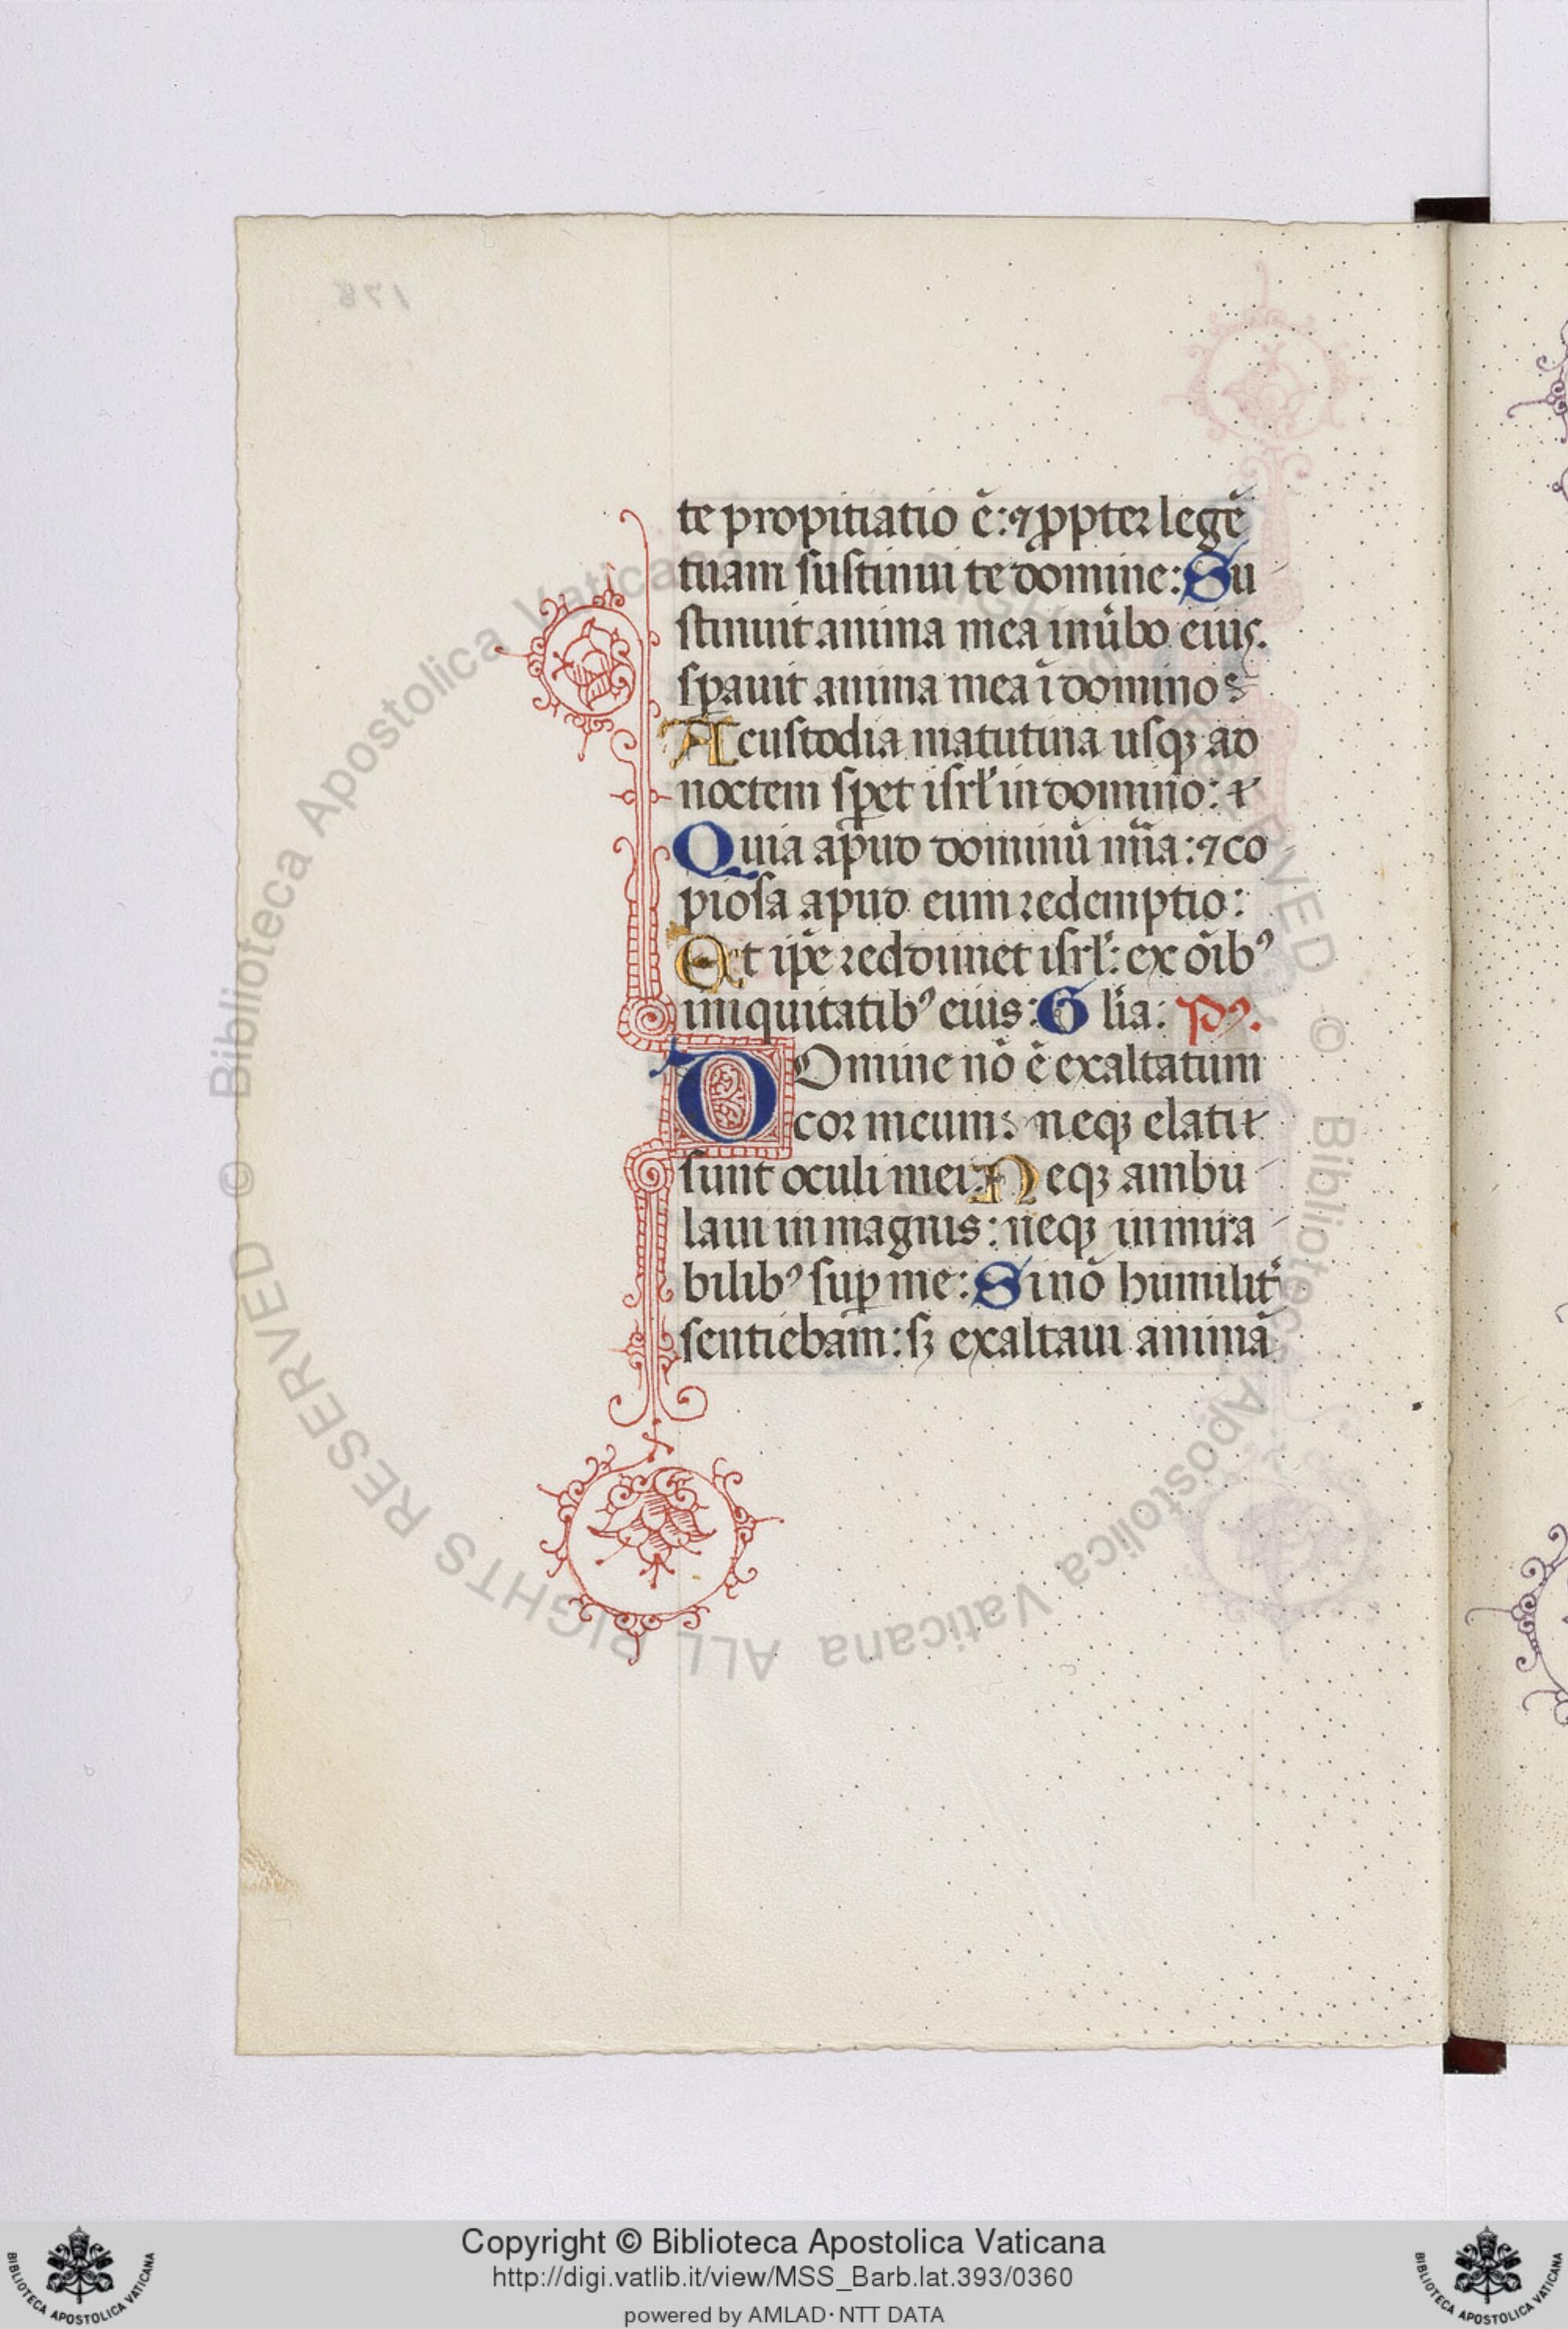 178
te propitiatio ē: ⁊ ꝓpter legē
tuam sustinui te domine: Su
stinuit anima mea in ūbo eius.
sꝑauit anima mea ī domino
A custodia matutina usqꝫ ad
noctem sꝑet isrl̄ in domino:
Quia apud dominū mīa: ⁊ co
piosa apud eum redemptio:
Et ip̄e reddimet isrl̄: ex oīb⁹
iniquitatib⁹ eius: Gl̄ia: ps.
DOmine nō ē exaltatum
cor meum: neqꝫ elati
sunt oculi mei: Neqꝫ ambu
laui in magnis: neqꝫ in mira
bilib⁹ suꝑ me: Si nō humilit̄
sentiebam: sꝫ exaltaui animā
© Biblioteca Apostolica Vaticana ALL RIGHTS RESERVED © Biblioteca Apostolica Vaticana ALL RIGHTS RESERVED
Copyright © Biblioteca Apostolica Vaticana
http://digi.vatlib.it/view/MSS_Barb.lat.393/0360
powered by AMLAD·NTT DATA
BIBLIOTECA APOSTOLICA VATICANA
BIBLIOTECA APOSTOLICA VATICANA